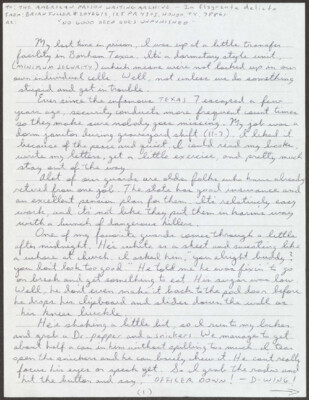 TO: THE AMERICAN PRISON WRITING ARCHIVE - In Flagrante Delicto
RE: "NO GOOD DEED GOES UNPUNISHED"
My last time in prison, I was up at a little transfer
facility in Bonham Texas. It's a dormitory style unit,
(MINIMUM SECURITY) which means were not locked up in our
own individual cells. Well, not unless we do something
stupid and get in trouble.
Ever since the infamous TEXAS 7 escaped a few
years ago, security conducts more frequent count times
to they make sure nobody goes missing. My job was a
dorm janitor during graveyard shift (11-7). I liked it
because of the peace and quiet. I could read my books,
write my letters, get a little exercise, and pretty much
stay out of the way.
Alot of our guards are older folks who have already
retired from one job. The state has good insurance and
an excellent pension plan for them. It's relatively easy
work, and it's not like they put them in harms way
with a bunch of dangerous killers.
One of my favorite guards comes through a little
after midnight. He's white as a sheet and sweating like
a whore at church. I asked him, "you alright buddy?
you dont look too good." He told me he was fixin to go
on break and get something to eat. His sugar was low
Well, he don't even make it back to the end door before
he drops his clipboard and slides down the wall on
his horse buckle.
He's shaking a little bit, so I run to my bunk
and grab a Dr. pepper and a snickers. We manage to get
about half a can in him without spilling too much. I tear
open the snickers and he can barely chew it. He can't really
focus his eyes or speak yet. So I grab the radio and
hit the button and say, OFFICER DOWN! - D-WING!
(1)